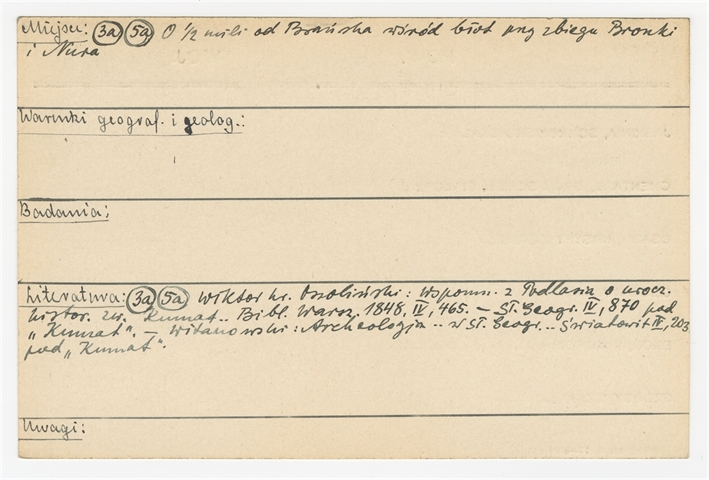 Miejsce: 3a 5a O 1/2 mili od Brańska wśród błot przy zbiegu Bronki
i Nura
Warunki geograf. i geolog.:
Badania:
Literatura: 3a 5a Wiktor hr. Ossoliński: Wspomn. z Podlasia o urocz.
histor. zw. Kumat.. Bibl. Warsz. 1848, IV, 465. — Sł. Geogr. IV, 870 pod
„Kumat". — Witanowski: Archeologja .. w Sł. Geogr... Światowit IV, 203
pod „Kumat".
Uwagi: